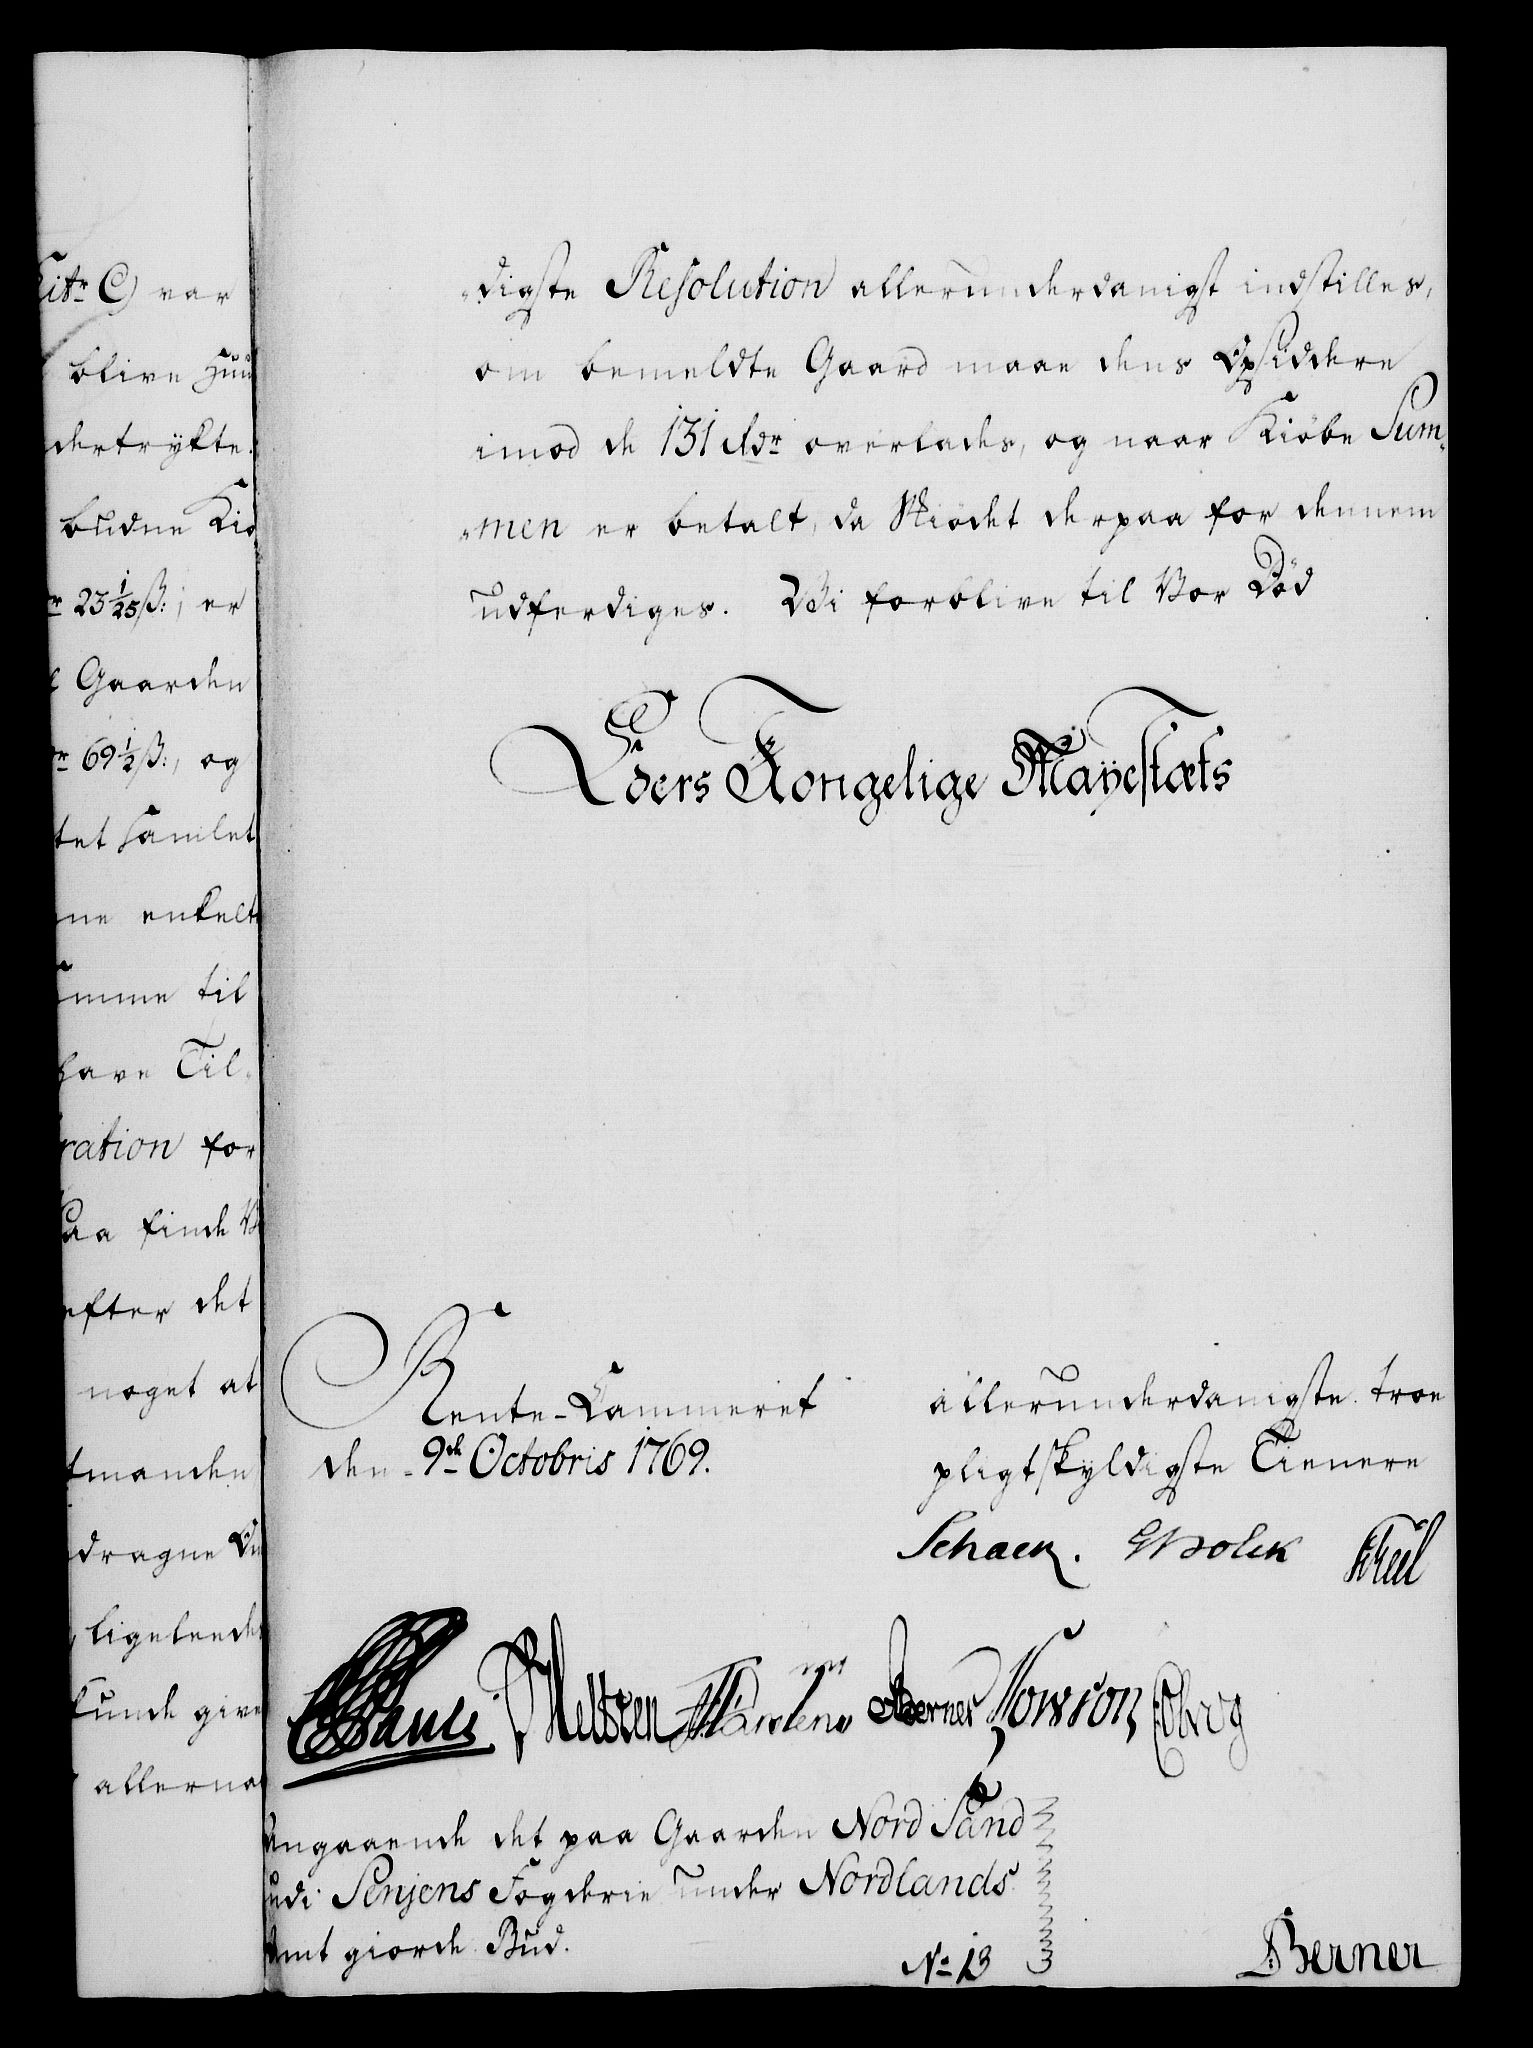 Litr C) var
blive Huu
dertrykte.
budne Kiø
23 1/25 ß:, er
Gaarden
69 1/2 ß:, og
tet samlet
ne enkelt
imme til
have Til-
ration for
saa finde V
efter det
noget at
tmanden
dragne
ligeleede
kunde give
allerna
digste Resolution allerunderdanigst indstilles,
om bemeldte Gaard maae dens Opsiddere
imod de 131 Rdr overlades, og naar Kiøbe Sum-
men er betalt, da Skiødet derpaa for dennem
udferdiges. Vi forblive til Vor Død
Eders Kongelige Mayestæts
Rente-Cammeret
den 9de Octobris 1769.
allerunderdanigste troe
pligtskyldigste Tienere
Schack. Juel
Pauli Meltzen Berner Kowson
Angaaende det paa Gaarden Nord Sand
udi Senjens Fogderie under Nordlands
Amt giorde Bud.
No 13
Berner